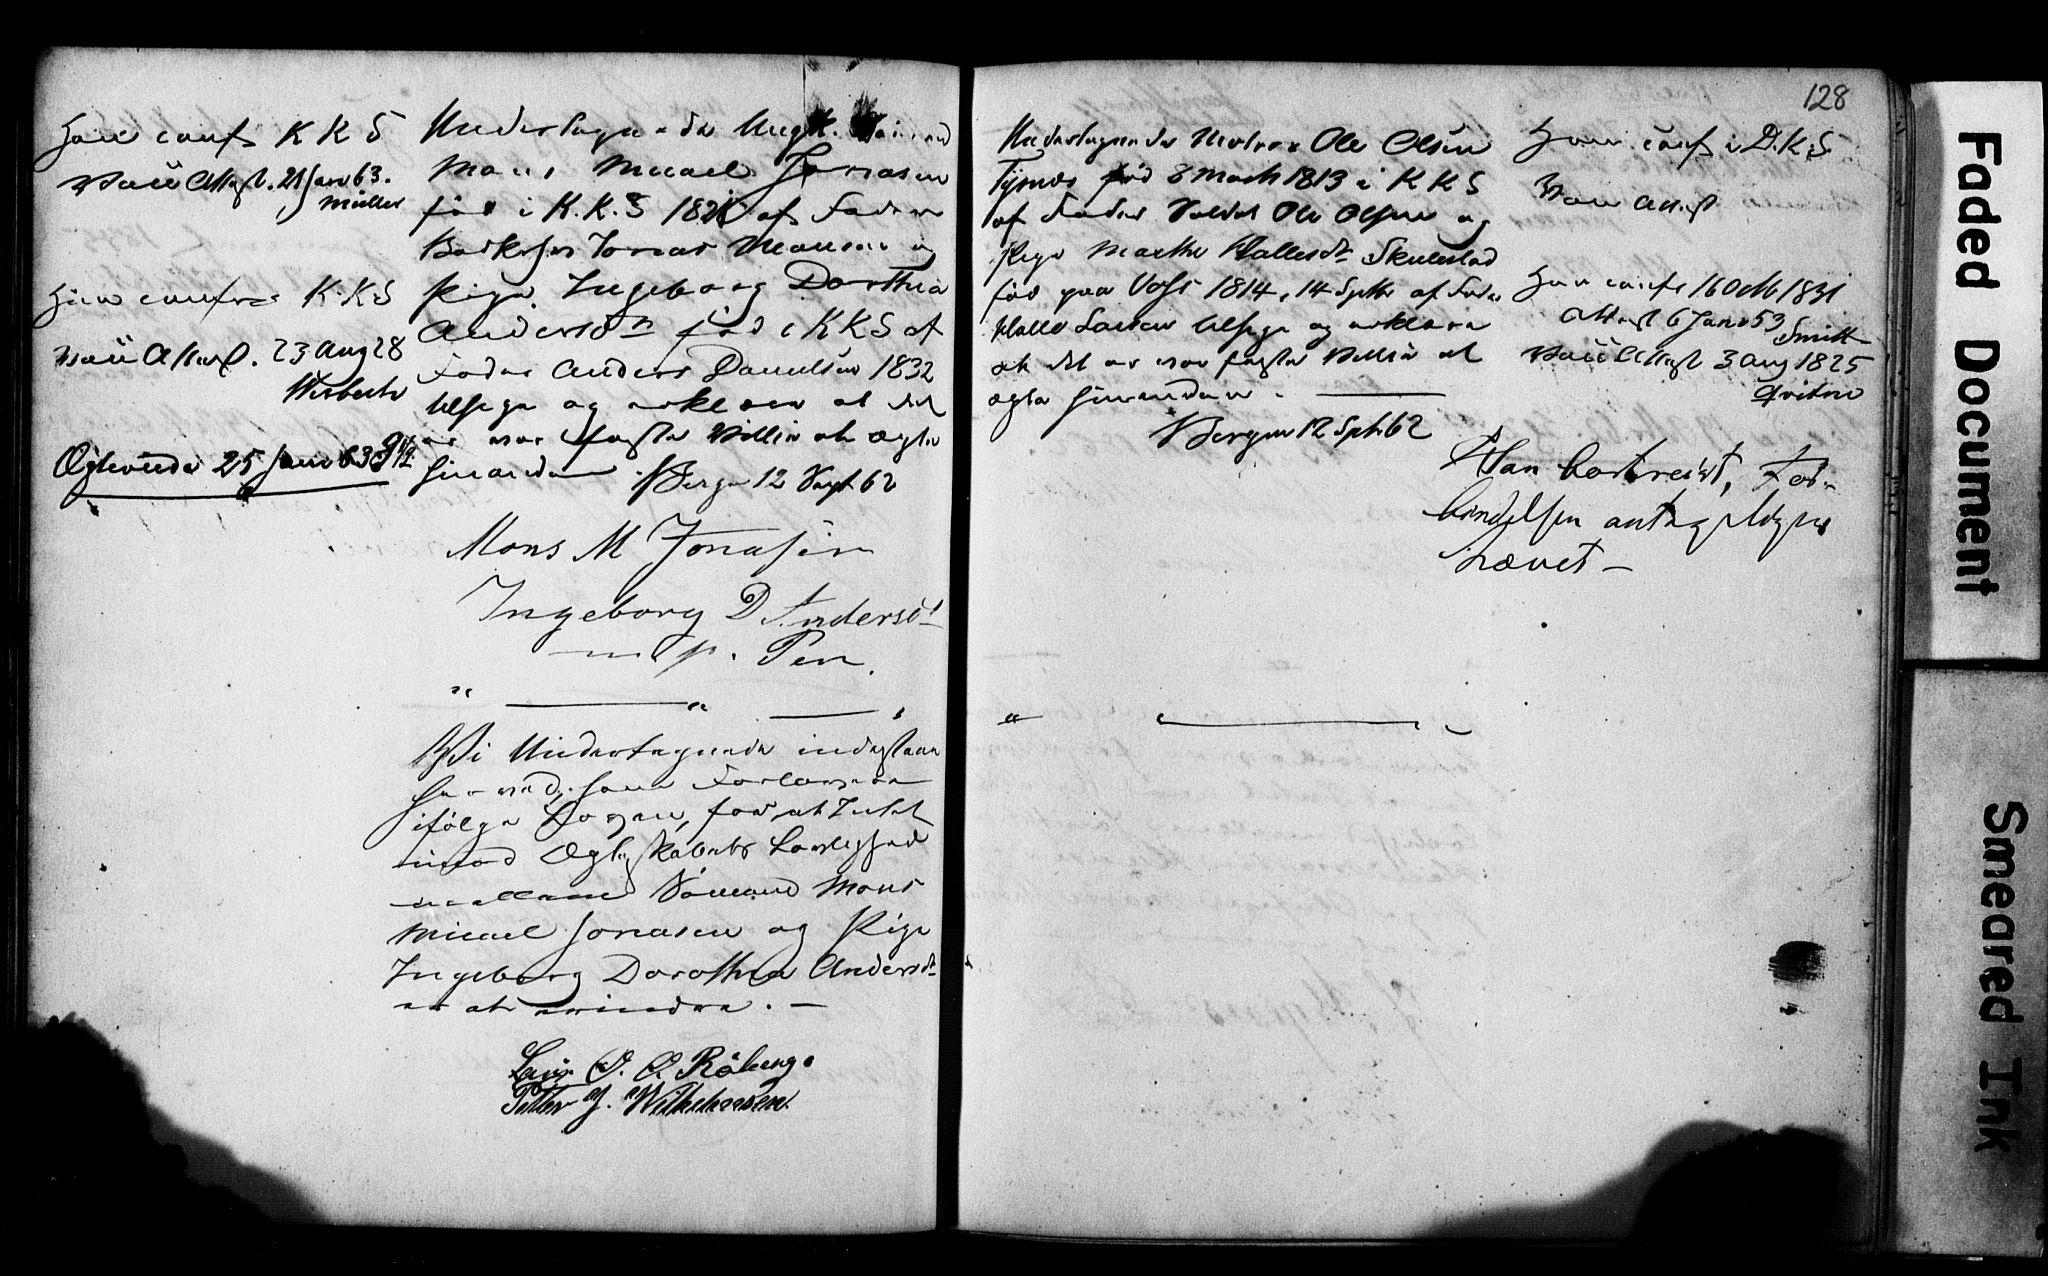 Han conf KKS
Vacc Attest. 21 Jan 63.
Müller
Hun confr KKS
Vacc Attest. 23 Aug 28
Wisbech
Ægteviede 25 Janr 63
Undertegnede Ungk. Sømand
Mons Micael Jonasen
fød i K.K.S af Fader
Jonas Monsen og
Pige Ingeborg Dorthea
Andersdr fød i KKS af
Fader Anders Danielsen 1832
tilsige og erklære at det
er vor faste Villie at ægte
hinanden. Bergen 12 Sept 62
Mons M Jonasen
Ingeborg D Andersdt
m. p. Pen.
Vi Undertegnede indestaae
herved, som Forlovere
ifølge Loven, for at Intet
imod Ægteskabets Lovlighed
mellem Sømand Mons
Micael Jonasen og Pige
Ingeborg Dorothea Andersdt
er at erindre. —
O. O. Råberg
Petter J. Wilhelmsen
128
Undertegnede Matros Ole Olsen
Tysnes fød 8 March 1813 i KKS
af Fader Soldat Ole Olsen og
Pige Marthe Hallesdr Skulestad
fød paa Voss 1814, 14 Septbr af Fader
Halle Larsen tilsige og erklære
at det er vor faste Villie at
ægte hinanden.
Bergen 12 Sptr 62
Han conf i D.K.S
Vacc Attest
Hun confr 16 Octb 1831
Attest 6 Janr 53 Smitt
Vacc Attest 3 Aug 1825
Han bortreist, For-
bindelsen antageligvis
hævet —
Faded Document
Smeared Ink